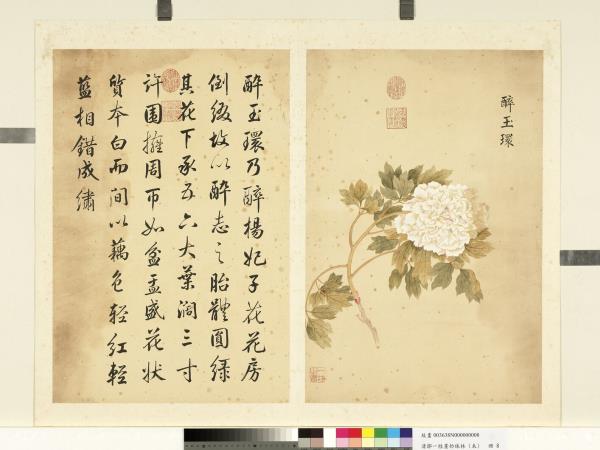 醉玉環
醉玉環乃醉楊妃子花花房
倒綴故以醉志之胎體圓綠
其花下承五六大葉闊三寸
許圍擁周帀如盆盂盛花狀
質本白而間以藕色輕紅輕
藍相錯成繡
故畫 003638N000000008